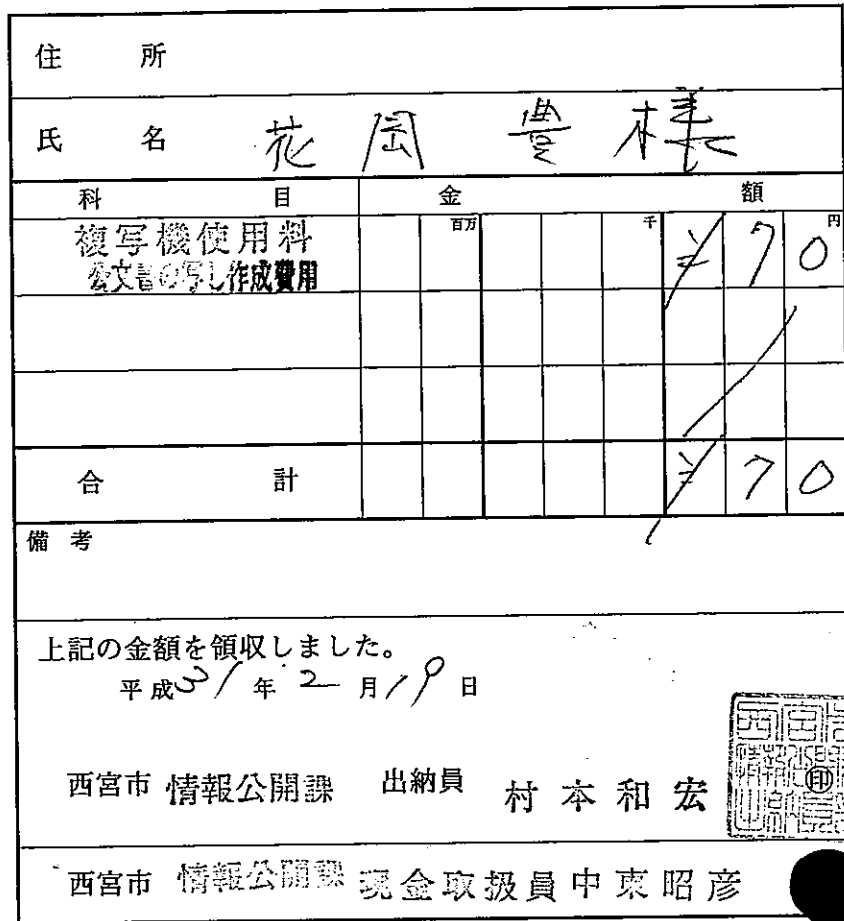 住所
氏名 花岡 豊 様
科目 金額
複写機使用料 百万 千 円 ¥70
公文書の写し作成費用
合計 ¥70
備考
上記の金額を領収しました。
平成31年2月19日
西宮市 情報公開課 出納員 村本和宏
印
西宮市 情報公開課 現金取扱員 中東昭彦